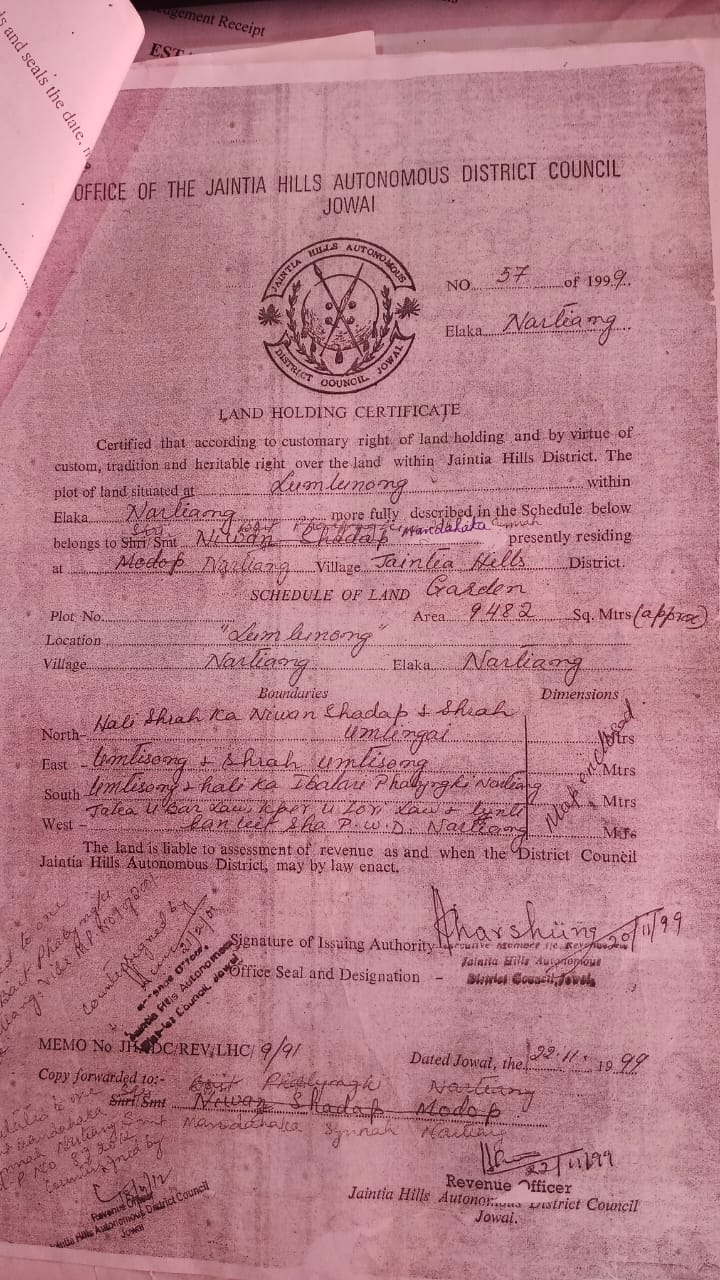 s and seals the date, m
dgement Receipt
EST
OFFICE OF THE JAINTIA HILLS AUTONOMOUS DISTRICT COUNCIL
JOWAI
JAINTIA HILLS AUTONOMOUS
DISTRICT COUNCIL, JOWAI
NO. 57 of 1999.
Elaka Nartiang
LAND HOLDING CERTIFICATE
Certified that according to customary right of land holding and by virtue of
custom, tradition and heritable right over the land within Jaintia Hills District. The
plot of land situated at Lumlunong within
Elaka Nartiang more fully described in the Schedule below
belongs to Shri/Smt Niwan Shadap Mandahaka presently residing
at Modop Nartiang Village Jaintia Hills District.
SCHEDULE OF LAND Garden
Plot No. Area 9482 Sq. Mtrs (approx)
Location "Lumlunong"
Village Nartiang Elaka Nartiang
Boundaries Dimensions
Hali Shrah Ka Niwan Shadap & Shrah
North- Umlingai Mtrs
East - Umtisong & Shrah Umtisong Mtrs
South Umtisong & hali Ka Ibalari Phalyngki Nartiang Mtrs
West - P.W.D. Nartiang Mtrs
Map enclosed
The land is liable to assessment of revenue as and when the District Council
Jaintia Hills Autonomous District, may by law enact.
20/11/99
Signature of Issuing Authority
Executive Member i/c. Revenue
Jaintia Hills Autonomous
District Council, Jowai.
Office Seal and Designation -
Countersigned by
Revenue Officer,
Jaintia Hills Autonomous
District Council, Jowai
MEMO No JHADC/REV/LHC/ 9/91
Dated Jowai, the 22.11. 1999
Copy forwarded to:- Nartiang
Shri/Smt Niwan Shadap Modop
Mandahaka Symnah Nartiang
22/11/99
Revenue Officer
Jaintia Hills Autonomous District Council
Jowai.
Countersigned by
Revenue Officer
Jaintia Hills Autonomous District Council
Jowai